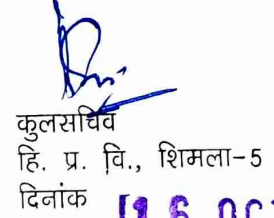 कुलसचिव
हि. प्र. वि., शिमला-5
दिनांक 16